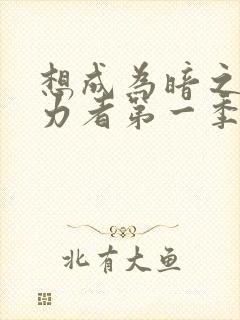 想成为暗之
力者第一季
北有大鱼